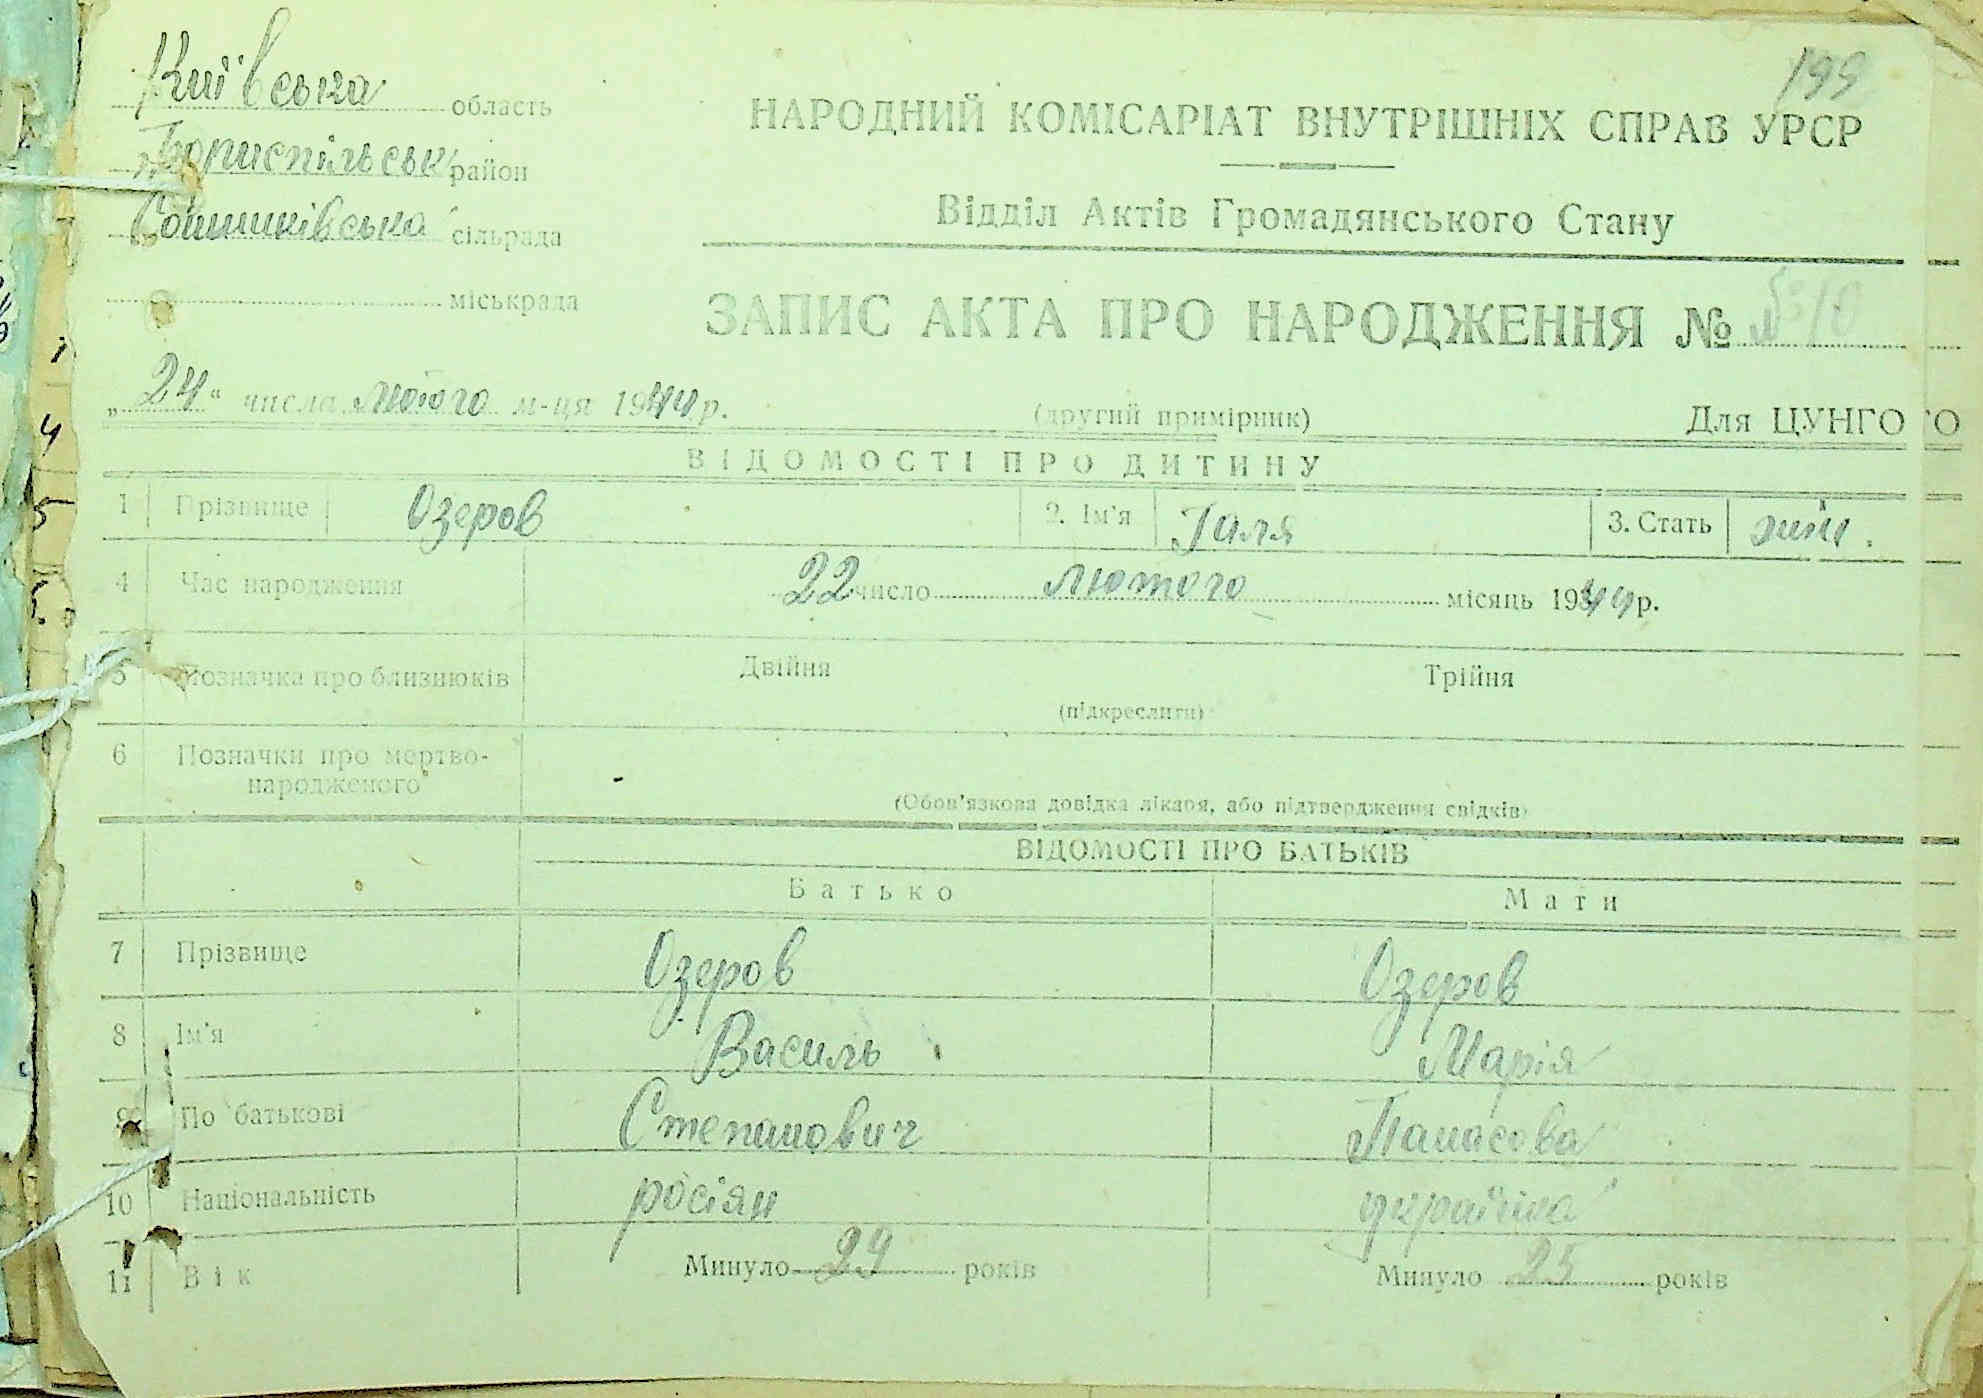 199
Київська область
Бориспільськ район
Сошниківська сільрада
міськрада
НАРОДНИЙ КОМІСАРІАТ ВНУТРІШНІХ СПРАВ УРСР
Відділ Актів Громадянського Стану
ЗАПИС АКТА ПРО НАРОДЖЕННЯ №
„24“ числа лютого м-ця 1944 р.
(другий примірник)
Для ЦУНГО
ВІДОМОСТІ ПРО ДИТИНУ
1 Прізвище Озеров 2. Ім'я Галя 3. Стать жін.
4 Час народження 22 число лютого місяць 1944 р.
5 Позначка про близнюків Двійня Трійня
(підкреслити)
6 Позначки про мертво-
народженого
(Обов'язкова довідка лікаря, або підтвердження свідків)
ВІДОМОСТІ ПРО БАТЬКІВ
Батько Мати
7 Прізвище Озеров Озеров
8 Ім'я Василь Марія
9 По батькові Степанович Панасова
10 Національність росіян україніка
11 Вік Минуло 29 років Минуло 25 років